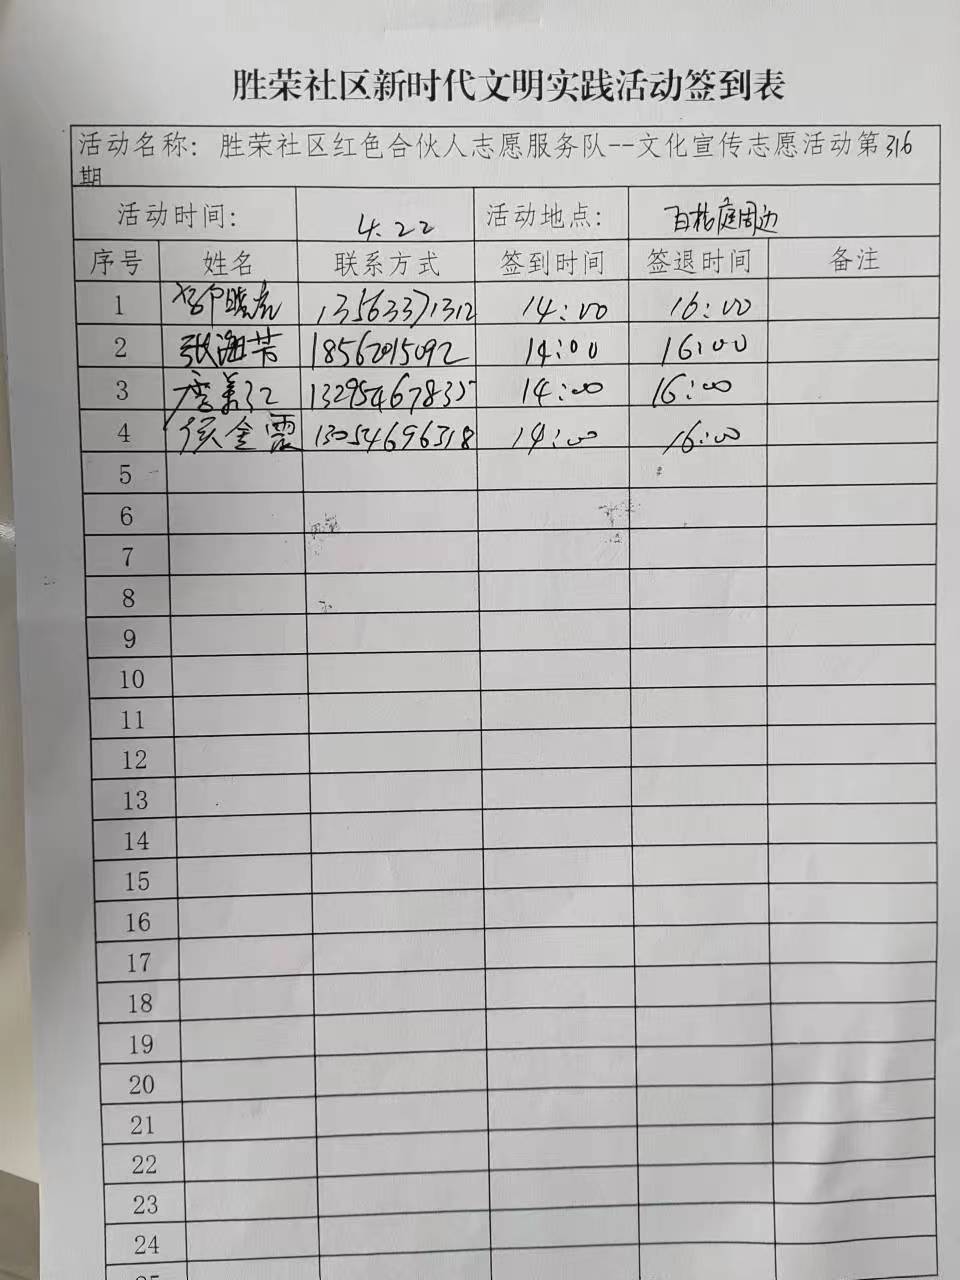 胜荣社区新时代文明实践活动签到表
活动名称: 胜荣社区红色合伙人志愿服务队--文化宣传志愿活动第316
期
活动时间: 4.22 活动地点: 百格庭周边
序号 姓名 联系方式 签到时间 签退时间 备注
1 13563371312 14:00 16:00
2 张海芳 18562015092 14:00 16:00
3 李美红 13295467835 14:00 16:00
4 侯金霞 13054696318 14:00 16:00
5
6
7
8
9
10
11
12
13
14
15
16
17
18
19
20
21
22
23
24
25